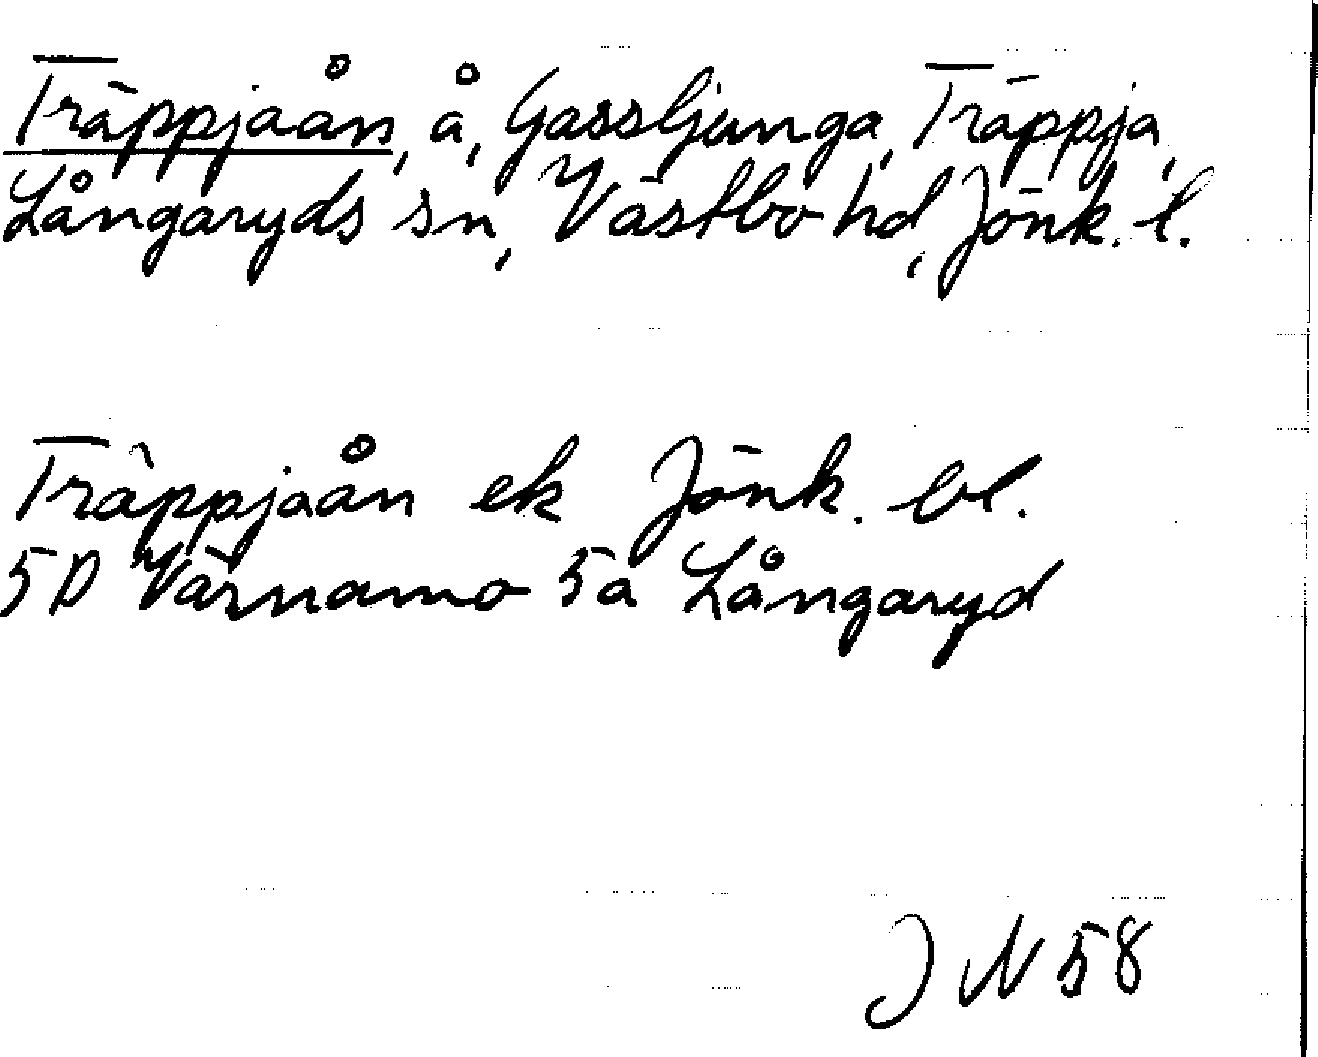 Träppjaån, å, Gassljunga, Träppja,
Långaryds sn, Västbo hd, Jönk. l.
Träppjaån ek Jönk. bl.
5D Värnamo 5a Långaryd
JN 58